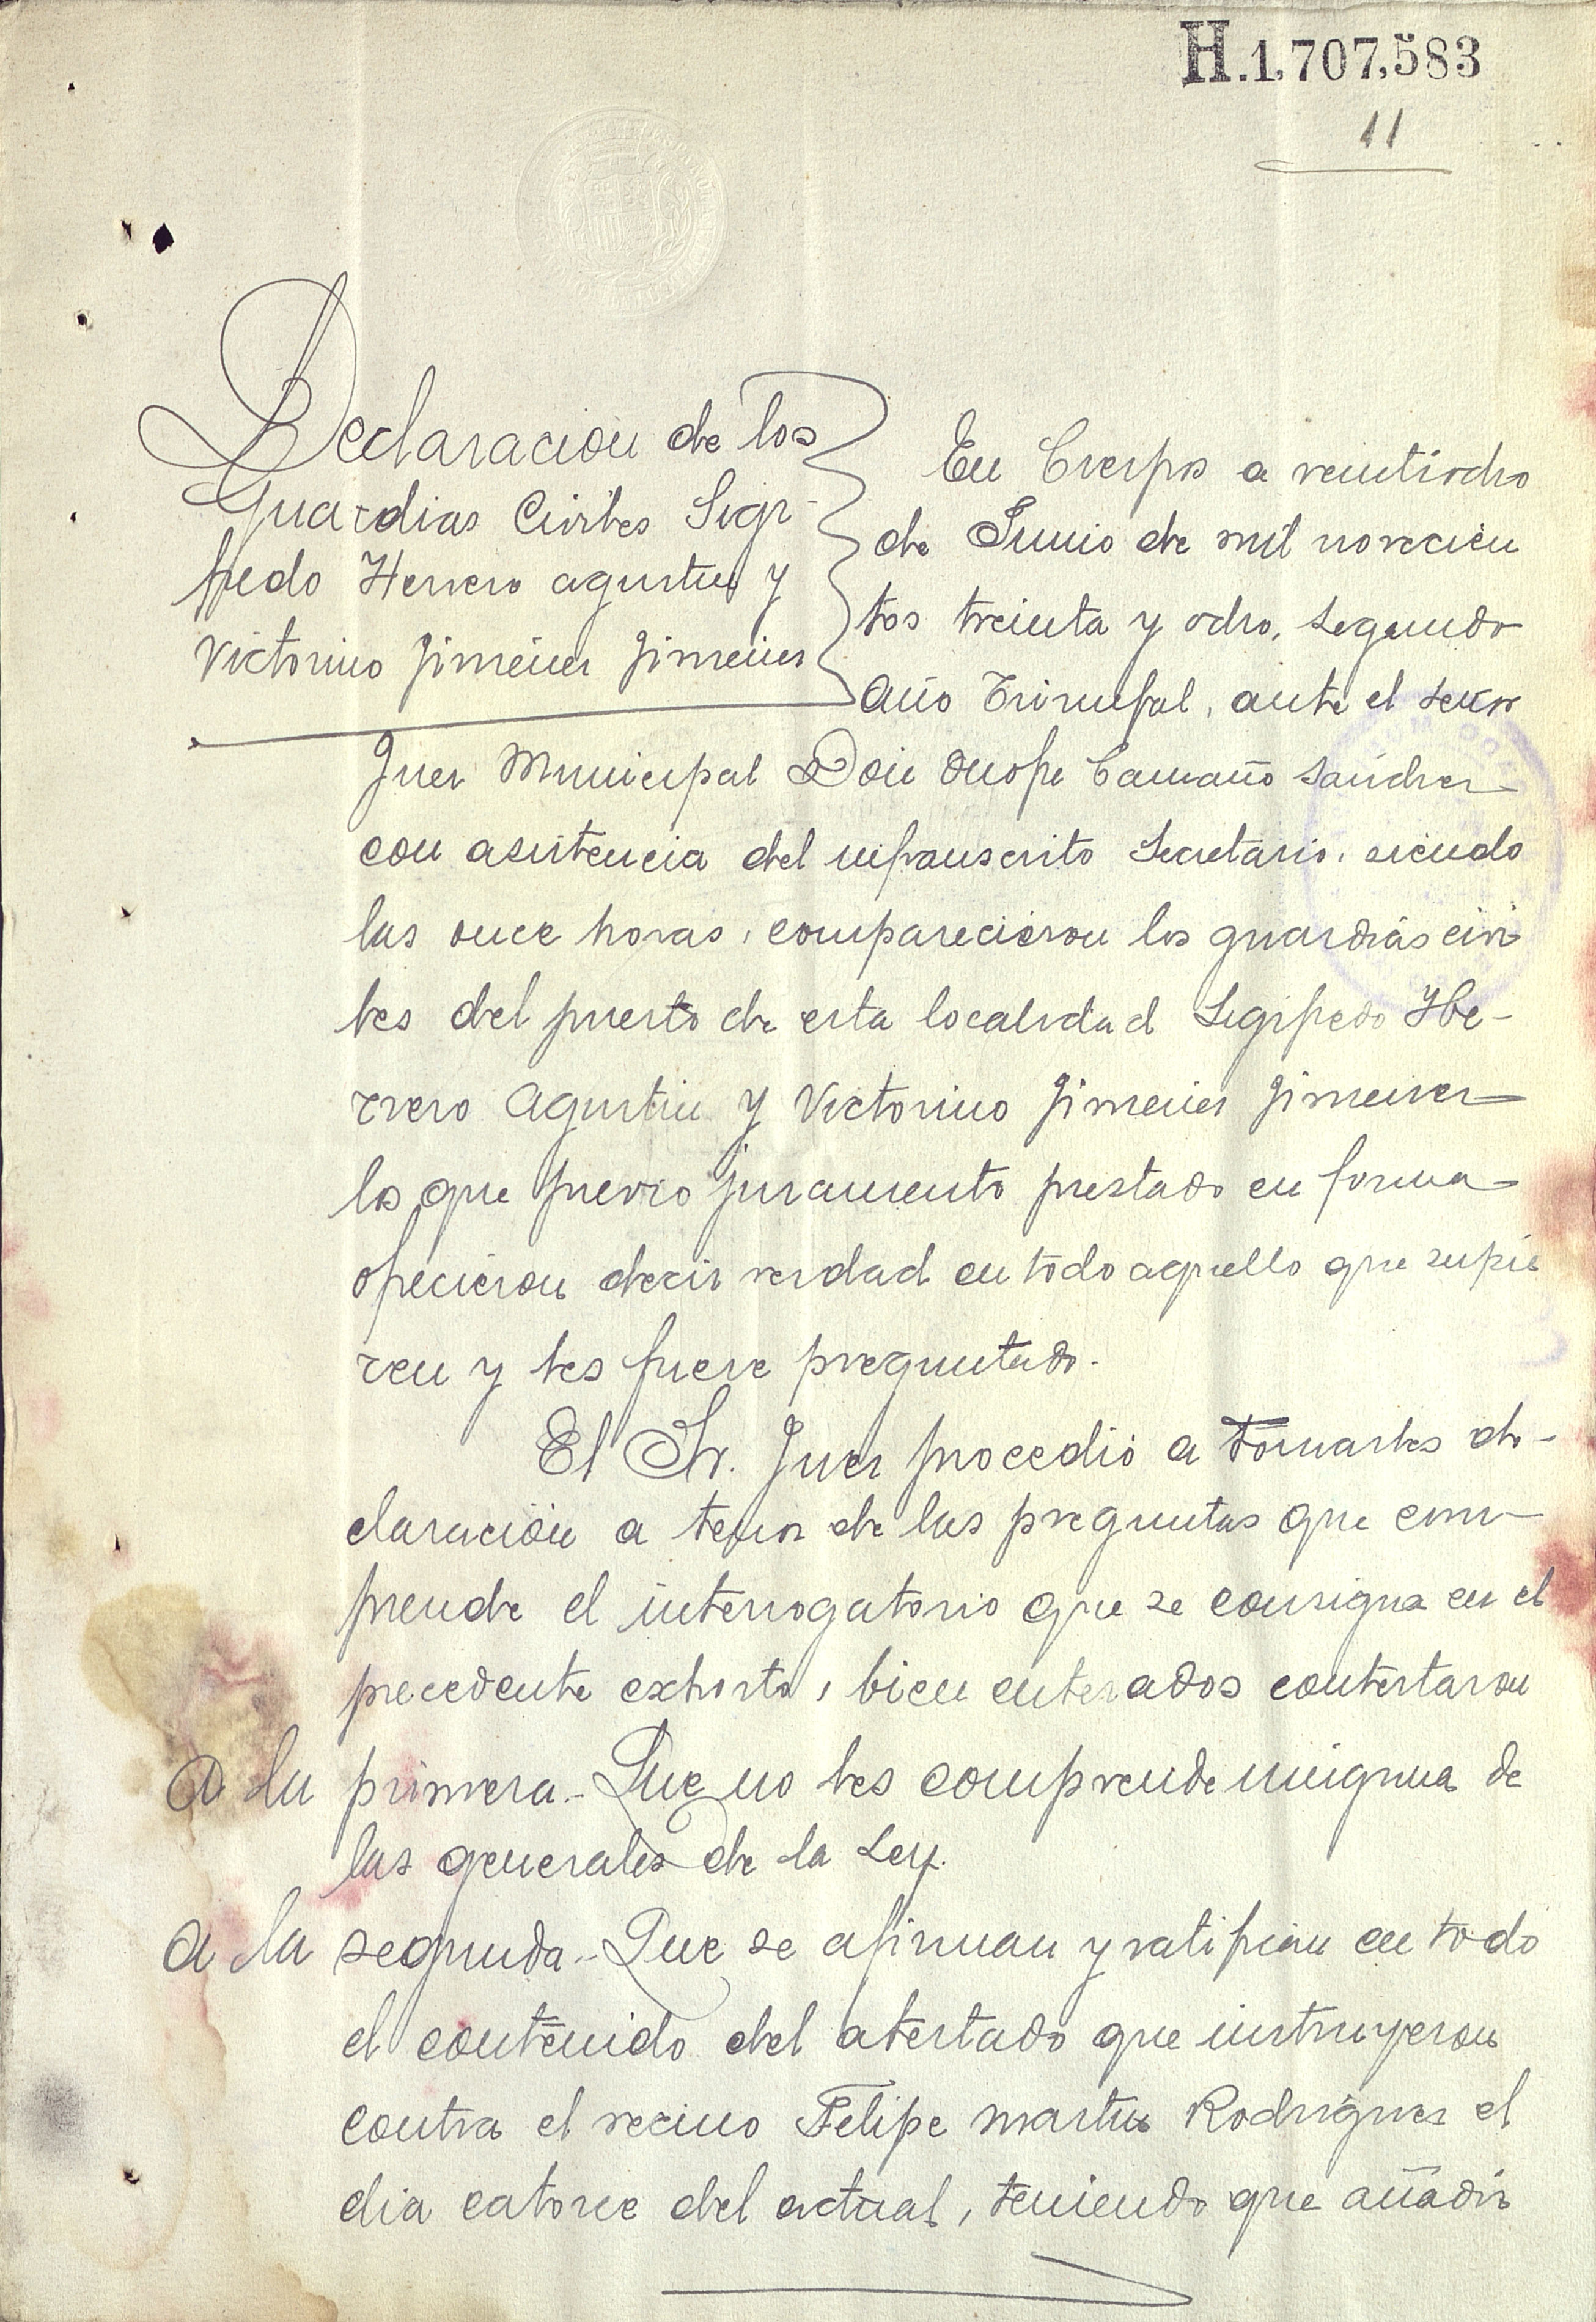 H.1,707,583
11
Declaracion de los
Guardias Civiles Sigi-
fredo Herrero agustin y
Victorino Jiménez Jimenez
En Crespos a veintiocho
de Junio de mil novecien
tos treinta y ocho, segundo
año Triunfal, ante el señor
Juez Municipal Don Camaño Sánchez
con asistencia del infrascrito Secretario, siendo
las once horas, comparecieron los guardias civi
les del puesto de esta localidad Sigifredo He-
rrero Agustin y Victorino Jimenez Jimenez
los que previo juramento prestado en forma
ofrecieron decir verdad en todo aquello que supie
ren y les fuere preguntado.
El Sr. Juez procedió a tomarles de-
claración a tenor de las preguntas que com-
prende el interrogatorio que se consigna en el
precedente exhorto, bien enterados contestaron
A la primera.- Que no les comprende ninguna de
las generales de la Ley.
A la segunda.- Que se afirman y ratifican en todo
el contenido del atestado que instruyeron
contra el vecino Felipe Martin Rodriguez el
dia catorce del actual, teniendo que añadir